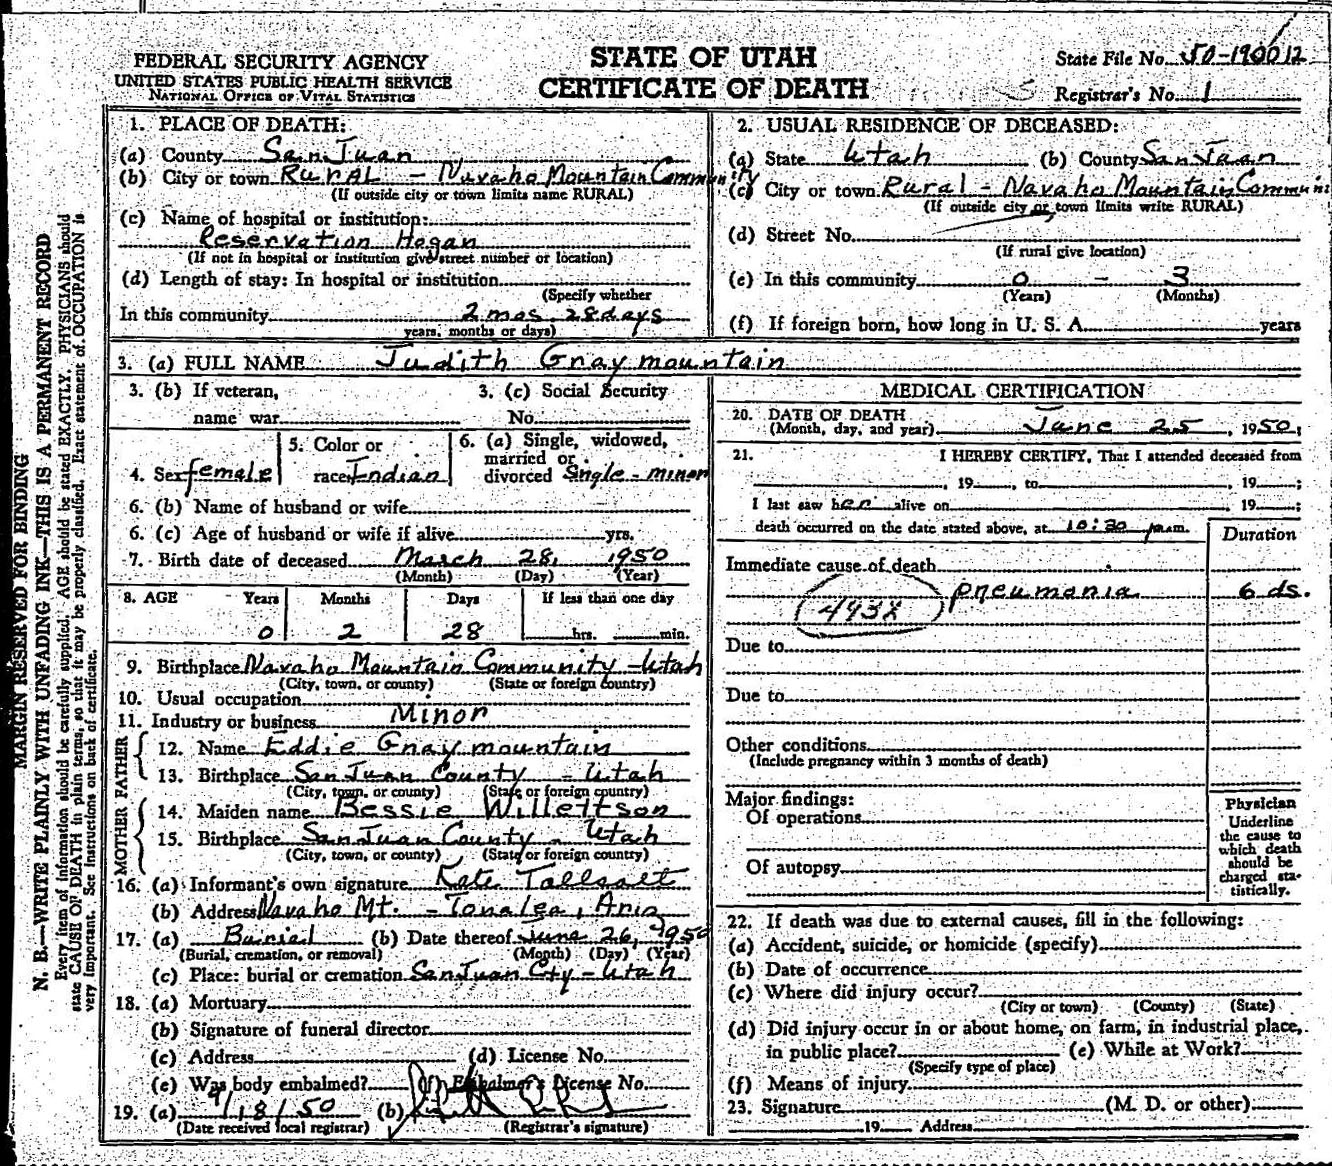 FEDERAL SECURITY AGENCY
UNITED STATES PUBLIC HEALTH SERVICE
NATIONAL OFFICE OF VITAL STATISTICS
STATE OF UTAH
CERTIFICATE OF DEATH
State File No. 50-190012
Registrar's No. 1
MARGIN RESERVED FOR BINDING
N. B.—WRITE PLAINLY WITH UNFADING INK—THIS IS A PERMANENT RECORD
Every item of information should be carefully supplied. AGE should be stated EXACTLY. PHYSICIANS should
state CAUSE OF DEATH in plain terms, so that it may be properly classified. Exact statement of OCCUPATION is
very important. See instructions on back of certificate.
1. PLACE OF DEATH:
(a) County San Juan
(b) City or town RURAL - Navaho Mountain Community
(If outside city or town limits name RURAL)
(c) Name of hospital or institution:
Reservation Hogan
(If not in hospital or institution give street number or location)
(d) Length of stay: In hospital or institution
(Specify whether
In this community 2 mos. 28 days
years, months or days)
2. USUAL RESIDENCE OF DECEASED:
(a) State Utah (b) County San Juan
(c) City or town Rural - Navaho Mountain Communi
(If outside city or town limits write RURAL)
(d) Street No.
(If rural give location)
(e) In this community 0 - 3
(Years) (Months)
(f) If foreign born, how long in U. S. A. years
3. (a) FULL NAME Judith Graymountain
3. (b) If veteran, 3. (c) Social Security
name war No.
4. Sex female 5. Color or race Indian 6. (a) Single, widowed, married or divorced Single - minor
6. (b) Name of husband or wife
6. (c) Age of husband or wife if alive yrs.
7. Birth date of deceased March 28, 1950
(Month) (Day) (Year)
8. AGE Years Months Days If less than one day
0 2 28 hrs. min.
9. Birthplace Navaho Mountain Community - Utah
(City, town, or county) (State or foreign country)
10. Usual occupation
11. Industry or business Minor
FATHER
12. Name Eddie Graymountain
13. Birthplace San Juan County - Utah
(City, town, or county) (State or foreign country)
MOTHER
14. Maiden name Bessie Willettson
15. Birthplace San Juan County - Utah
(City, town, or county) (State or foreign country)
16. (a) Informant's own signature Kate Tallsalt
(b) Address Navaho Mt. - Tonalea, Ariz
17. (a) Burial (b) Date thereof June 26, 1950
(Burial, cremation, or removal) (Month) (Day) (Year)
(c) Place: burial or cremation San Juan Cty - Utah
18. (a) Mortuary
(b) Signature of funeral director
(c) Address (d) License No.
(e) Was body embalmed? (f) Embalmer's License No.
19. (a) 9/18/50 (b)
(Date received local registrar) (Registrar's signature)
MEDICAL CERTIFICATION
20. DATE OF DEATH
(Month, day, and year) June 25, 1950;
21. I HEREBY CERTIFY, That I attended deceased from
, 19 , to , 19 ;
I last saw her alive on 19 ;
death occurred on the date stated above, at 10:30 p.m.
Duration
Immediate cause of death
pneumania 6 ds.
493X
Due to
Due to
Other conditions
(Include pregnancy within 3 months of death)
Major findings:
Of operations
Of autopsy
Physician
Underline
the cause to
which death
should be
charged sta-
tistically.
22. If death was due to external causes, fill in the following:
(a) Accident, suicide, or homicide (specify)
(b) Date of occurrence
(c) Where did injury occur?
(City or town) (County) (State)
(d) Did injury occur in or about home, on farm, in industrial place,
in public place? (e) While at Work?
(Specify type of place)
(f) Means of injury
23. Signature (M. D. or other)
19 Address